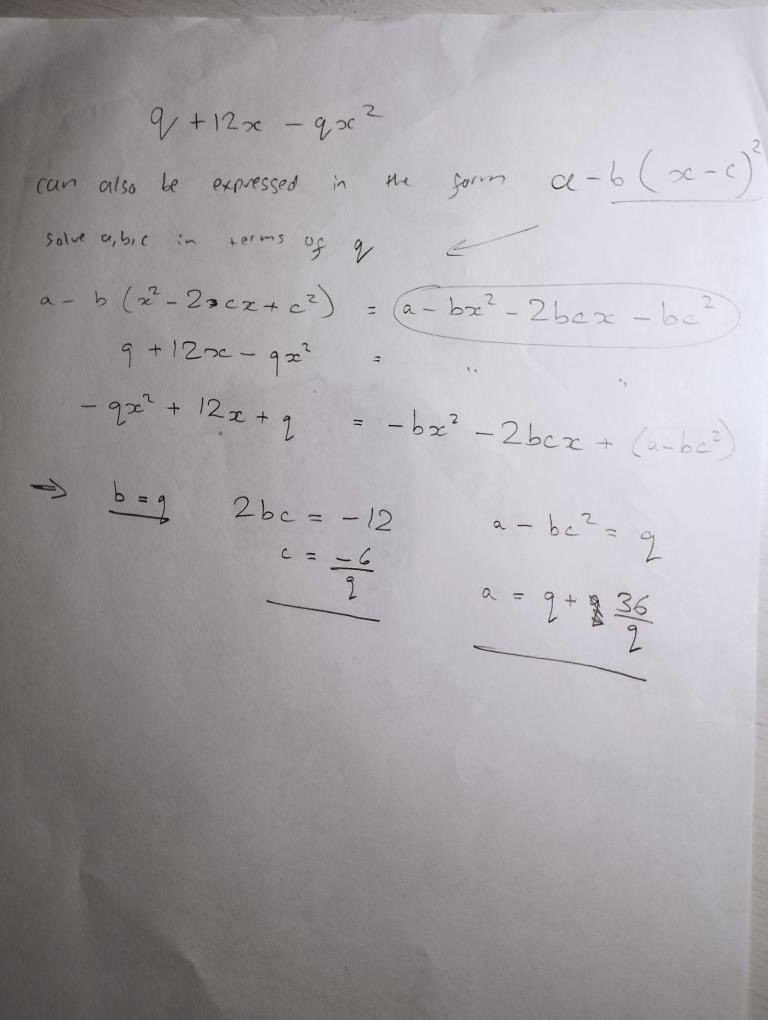 q + 12x - qx²
can also be expressed in the form a - b(x - c)²
solve a, b, c in terms of q
a - b (x² - 2cx + c²) = a - bx² - 2bcx - bc²
q + 12x - qx² = " "
- qx² + 12x + q = - bx² - 2bcx + (a - bc²)
⇒ b = q 2bc = -12 a - bc² = q
c = -6/q a = q + 36/q